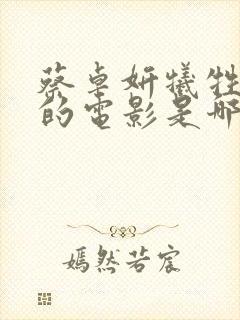 蔡卓妍犧牲
的電影是哪
嫣然若宸